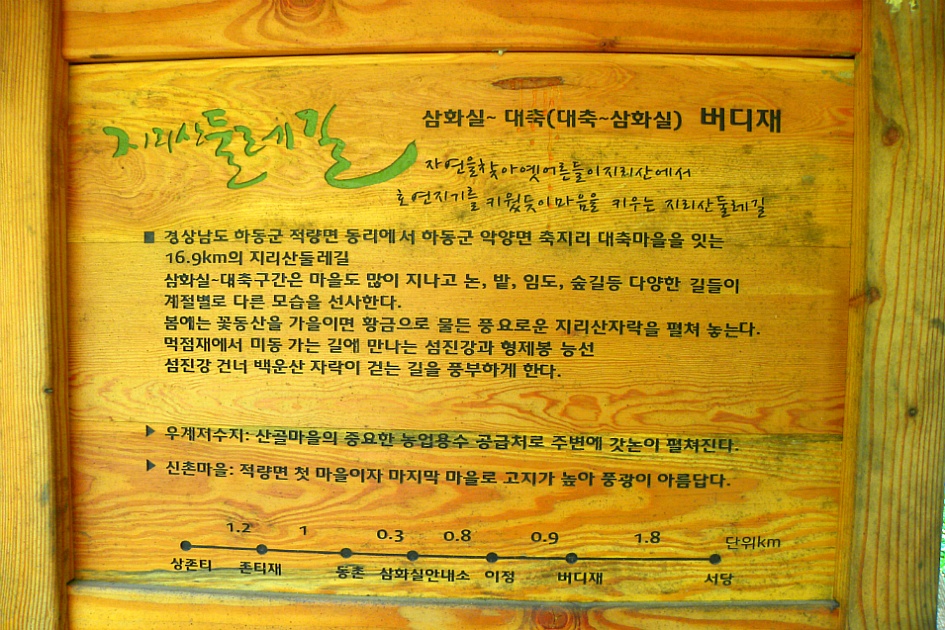 지리산둘레길
삼화실~ 대축(대축~삼화실) 버디재
자연을찾아옛어른들이지리산에서
호연지기를 키웠듯이마음을 키우는 지리산둘레길
■ 경상남도 하동군 적량면 동리에서 하동군 악양면 축지리 대축마을을 잇는
16.9km의 지리산둘레길
삼화실~대축구간은 마을도 많이 지나고 논, 밭, 임도, 숲길등 다양한 길들이
계절별로 다른 모습을 선사한다.
봄에는 꽃동산을 가을이면 황금으로 물든 풍요로운 지리산자락을 펼쳐 놓는다.
먹점재에서 미동 가는 길에 만나는 섬진강과 형제봉 능선
섬진강 건너 백운산 자락이 걷는 길을 풍부하게 한다.
▶ 우계저수지: 산골마을의 중요한 농업용수 공급처로 주변에 갓논이 펼쳐진다.
▶ 신촌마을: 적량면 첫 마을이자 마지막 마을로 고지가 높아 풍광이 아름답다.
1.2 1 0.3 0.8 0.9 1.8 단위km
상존티 존티재 동촌 삼화실안내소 이정 버디재 서당